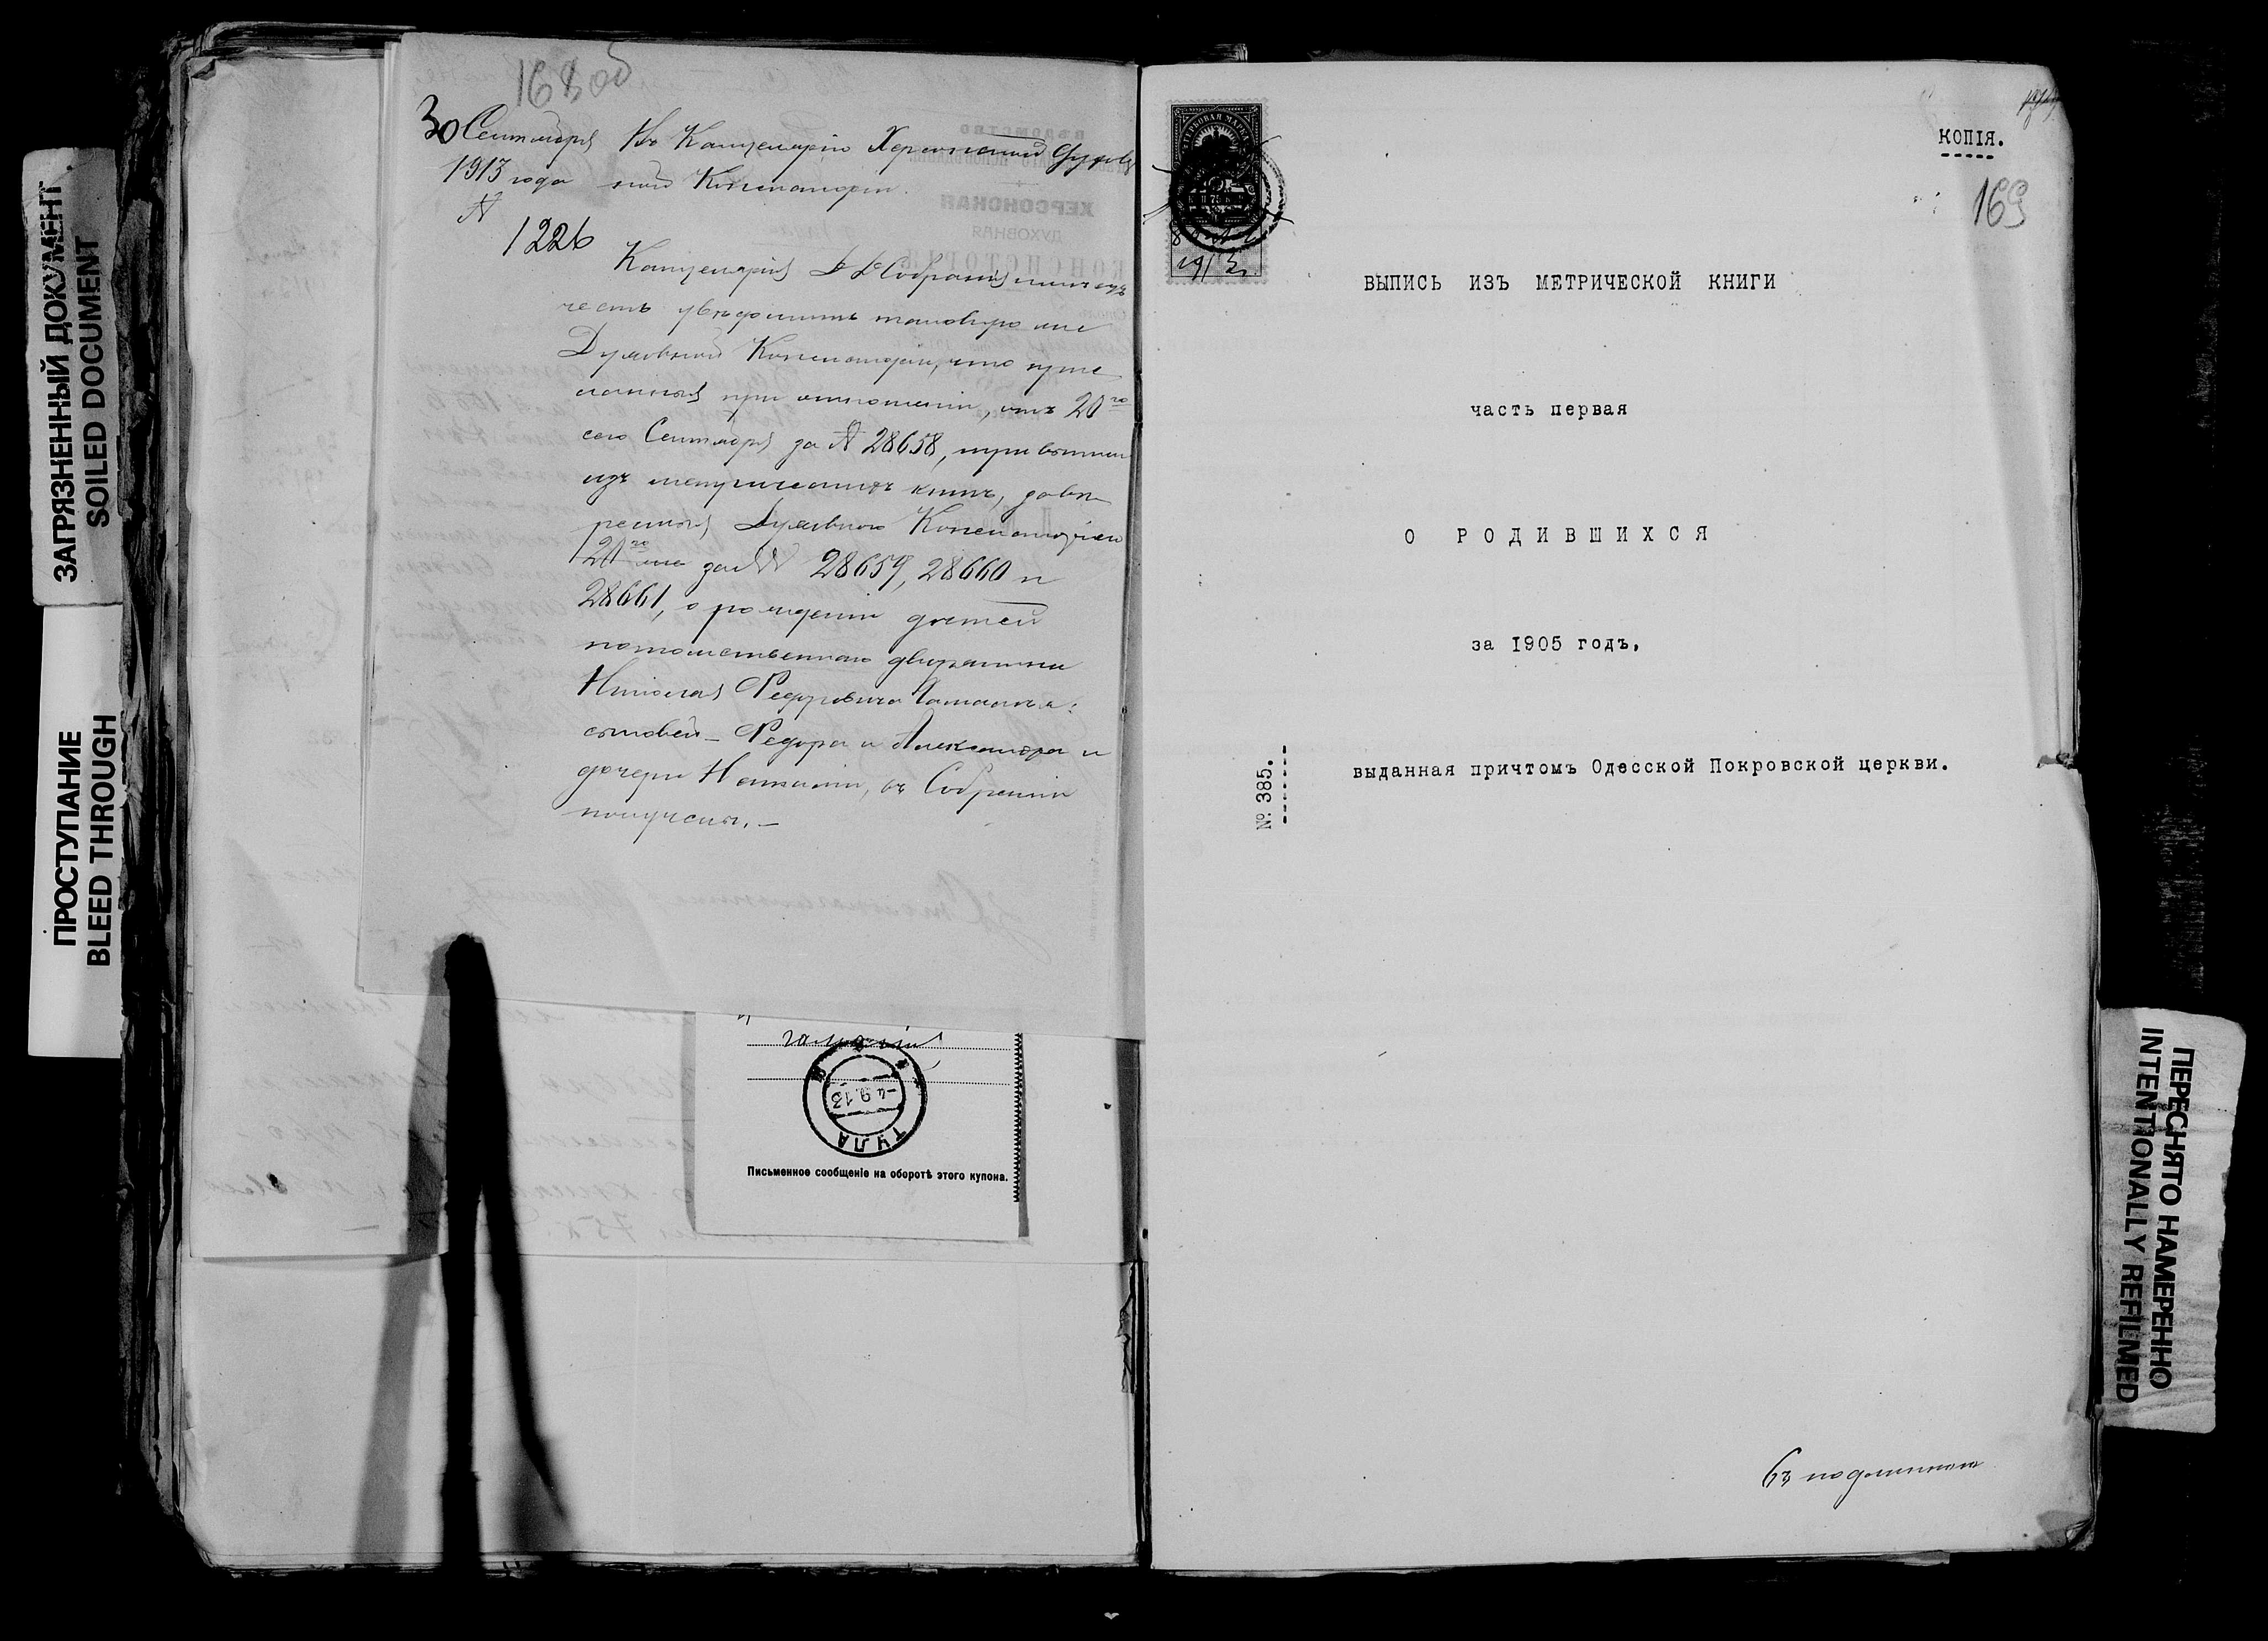 ЗАГРЯЗНЕННЫЙ ДОКУМЕНТ
SOILED DOCUMENT
ПРОСТУПАНИЕ
BLEED THROUGH
168 об
30 Сентября Въ Канцелярію Херсонской Духов
1913 года ной Консисторіи.
№
1226
Канцелярія Д Д Собранія имѣетъ
честь увѣдомить таковую же
Духовной Консисторіи, что
при отношеніи, отъ 20го
сего Сентября за № 28658, три выписи
изъ метрическихъ книгъ, завѣ
ренныя Духовною Консисторіею
20го за №№ 28659, 28660 и
28661, о рожденіи дѣтей
потомственнаго дворянина
Николая Федоровича
сыновей - Федора и Александра и
дочери Наталіи, въ Собраніи
получены. —
-4.9.13
ТУЛА
Письменное сообщеніе на оборотѣ этого купона.
ГЕРБОВАЯ МАРКА
75
1913 г.
КОПІЯ.
169
ВЫПИСЬ ИЗЪ МЕТРИЧЕСКОЙ КНИГИ
часть первая
О РОДИВШИХСЯ
за 1905 годъ,
№ 385.
выданная причтомъ Одесской Покровской церкви.
Съ подлиннымъ
ПЕРЕСНЯТО НАМЕРЕННО
INTENTIONALLY REFILMED